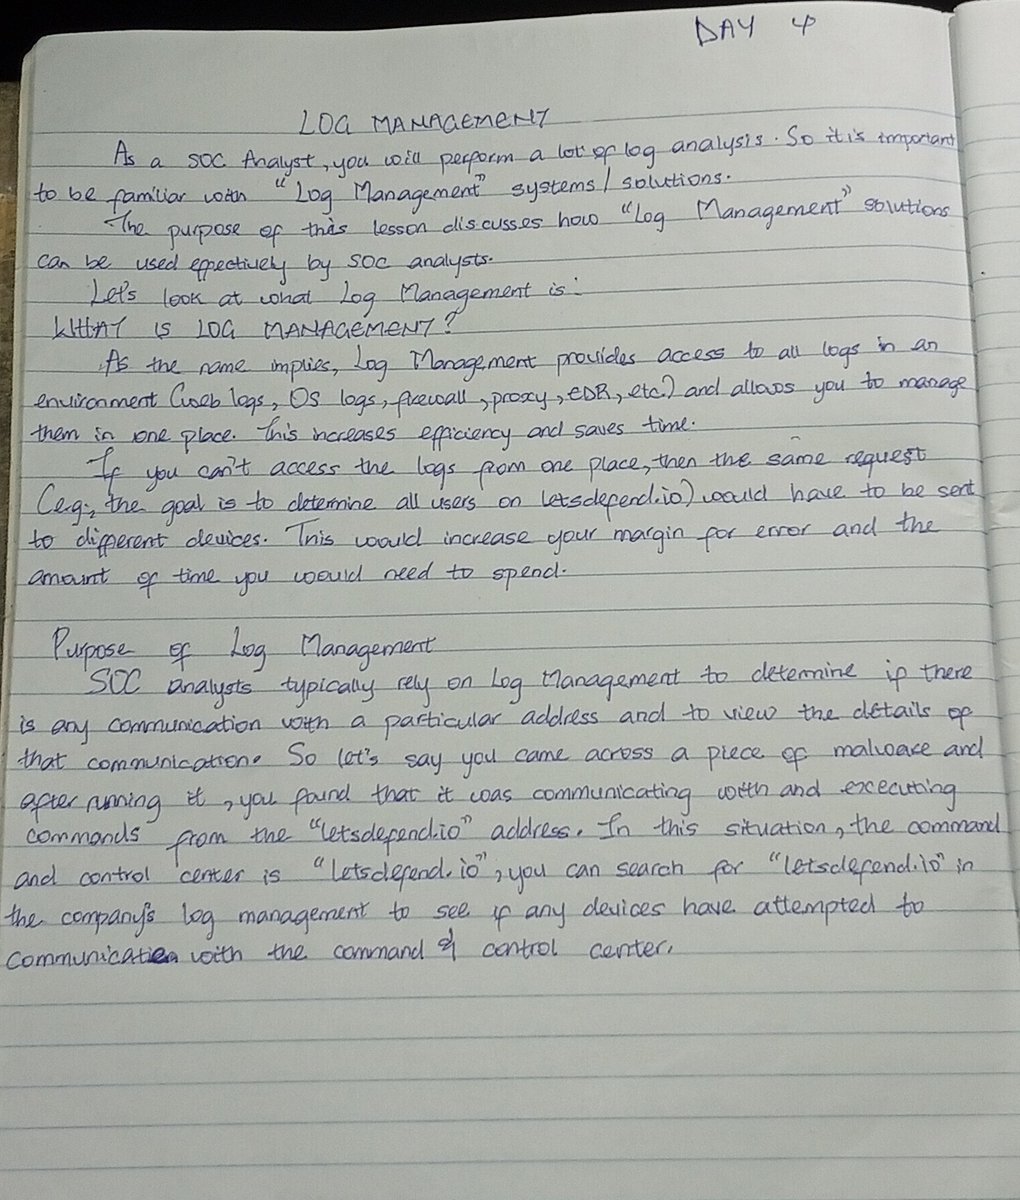 DAY 4
LOG MANAGEMENT
As a SOC Analyst, you will perform a lot of log analysis. So it is important
to be familiar with "Log Management" systems/solutions.
The purpose of this lesson discusses how "Log Management" solutions
can be used effectively by SOC analysts.
Let's look at what Log Management is:
WHAT IS LOG MANAGEMENT?
As the name implies, Log Management provides access to all logs in an
environment (web logs, OS logs, firewall, proxy, EDR, etc.) and allows you to manage
them in one place. This increases efficiency and saves time.
If you can't access the logs from one place, then the same request
(e.g., the goal is to determine all users on letsdefend.io) would have to be sent
to different devices. This would increase your margin for error and the
amount of time you would need to spend.
Purpose of Log Management
SOC analysts typically rely on Log Management to determine if there
is any communication with a particular address and to view the details of
that communication. So let's say you came across a piece of malware and
after running it, you found that it was communicating with and excecuting
commands from the "letsdefend.io" address. In this situation, the command
and control center is "letsdefend.io", you can search for "letsdefend.io" in
the company's log management to see if any devices have attempted to
communication with the command & control center.